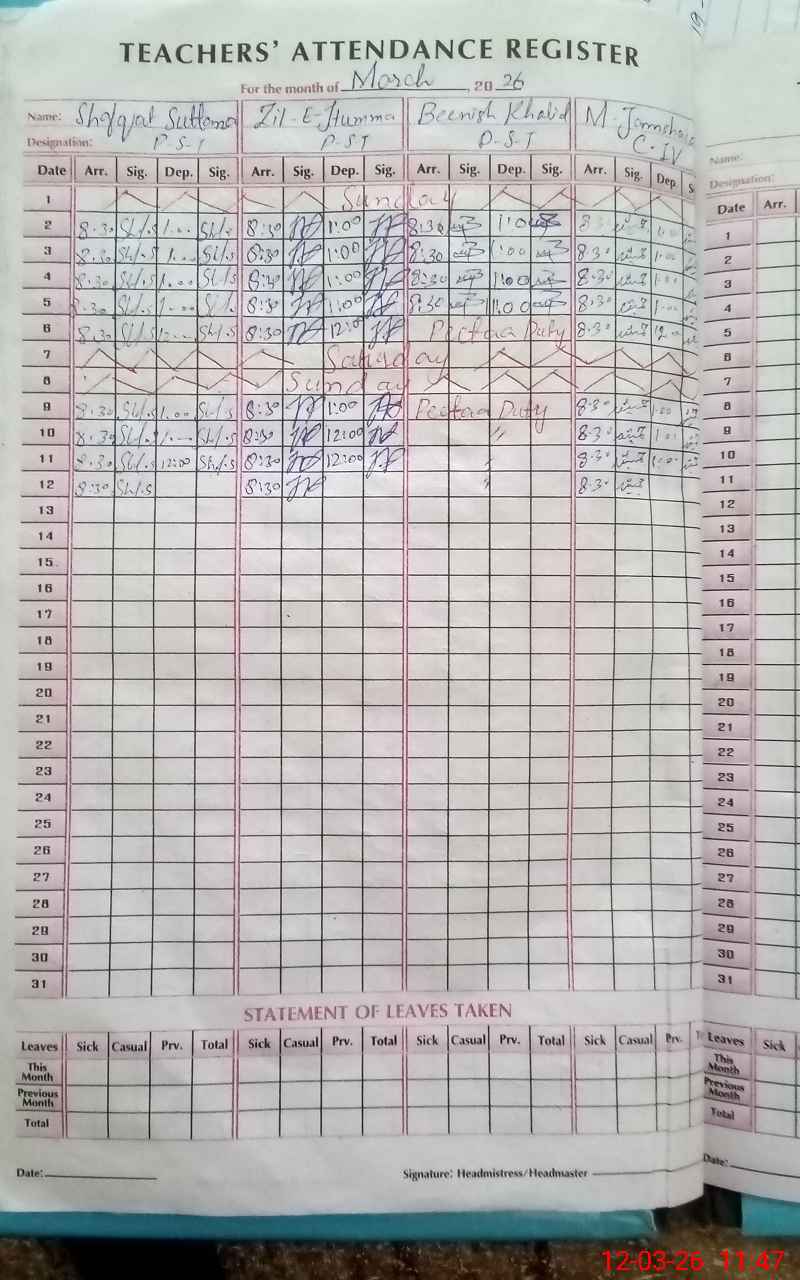 TEACHERS' ATTENDANCE REGISTER
For the month of March, 2026
Name: Shafqat Sultana Zil-E-Humma Beenish Khalid M. Jamshaid Name:
Designation: P-S-T P-S-T P-S-T C-IV Designation:
Date Arr. Sig. Dep. Sig. Arr. Sig. Dep. Sig. Arr. Sig. Dep. Sig. Arr. Sig. Dep Date Arr.
1 Sunday 1
2 8:30 Sh/.s 1:00 Sh/. 8:30 1:00 8:30 1:00 8:30 1:00 2
3 8:30 Sh/.s 1:00 Sh/.s 8:30 1:00 8:30 1:00 8:30 1:00 3
4 8:30 Sh/.s 1:00 Sh/s 8:30 1:00 8:30 1:00 8:30 1:00 4
5 8:30 Sh/.s 1:00 8:30 1:00 8:30 1:00 8:30 1:00 5
6 8:30 Sh/.s 12:00 Sh/.s 8:30 12:00 Pectaa Duty 8:30 12:00 6
7 Saturday 7
8 Sunday 8
9 8:30 Sh/.s 1:00 Sh/.s 8:30 1:00 Pectaa Duty 8:30 1:00 9
10 8:30 Sh/.s 1:00 Sh/.s 8:30 12:00 〃 8:30 1:00 10
11 8:30 Sh/.s 12:00 Sh/.s 8:30 12:00 8:30 1:00 11
12 8:30 Sh/.s 8:30 8:30 12
13 13
14 14
15 15
16 16
17 17
18 18
19 19
20 20
21 21
22 22
23 23
24 24
25 25
26 26
27 27
28 28
29 29
30 30
31 31
STATEMENT OF LEAVES TAKEN
Leaves Sick Casual Prv. Total Sick Casual Prv. Total Sick Casual Prv. Total Sick Casual Prv. Leaves Sick
This Month This Month
Previous Month Previous Month
Total Total
Date: Signature: Headmistress/Headmaster Date:
12-03-26 11:47